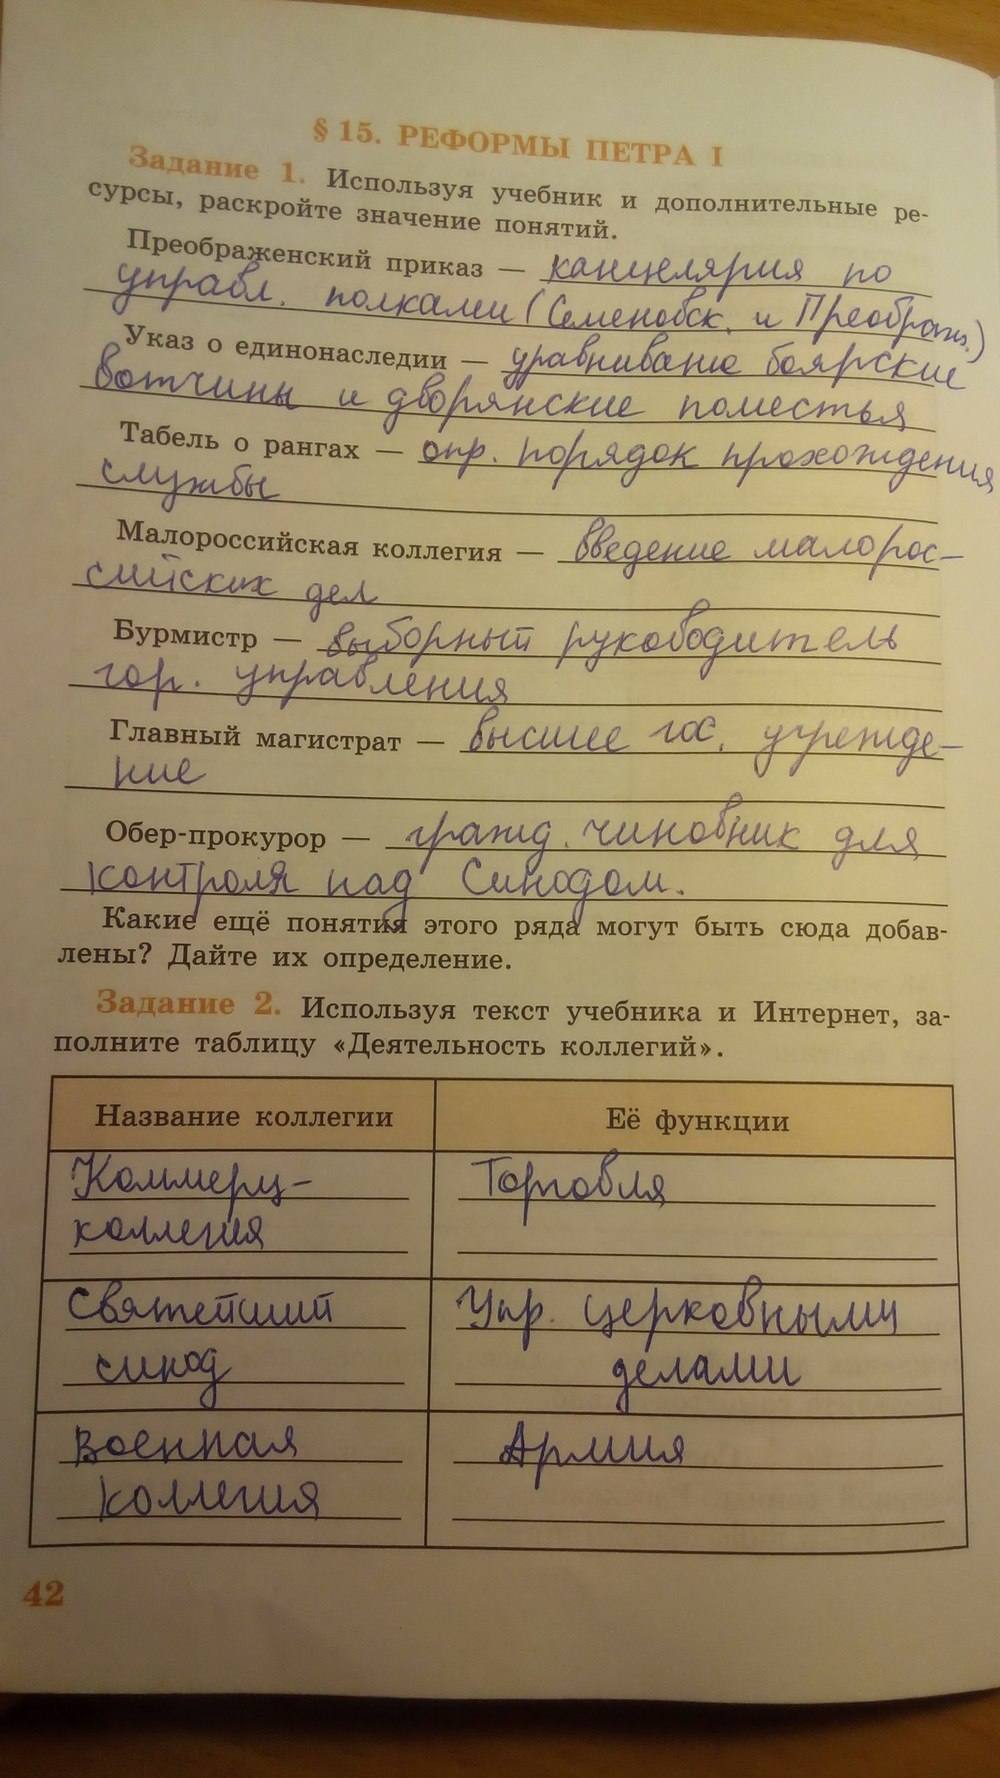 § 15. РЕФОРМЫ ПЕТРА I
Задание 1. Используя учебник и дополнительные ре-
сурсы, раскройте значение понятий.
Преображенский приказ — канцелярия по
управл. полками (Семеновск. и Преображ.)
Указ о единонаследии — уравнивание боярские
вотчины и дворянские поместья
Табель о рангах — опр. порядок прохождения
службы
Малороссийская коллегия — введение малорос-
сийских дел
Бурмистр — выборный руководитель
гор. управления
Главный магистрат — высшее гос. учрежде-
ние
Обер-прокурор — гражд. чиновник для
контроля над Синодом.
Какие ещё понятия этого ряда могут быть сюда добав-
лены? Дайте их определение.
Задание 2. Используя текст учебника и Интернет, за-
полните таблицу «Деятельность коллегий».
Название коллегии Её функции
Коммерц- Торговля
коллегия
Святейший Упр. церковными
синод делами
Военная Армия
коллегия
42